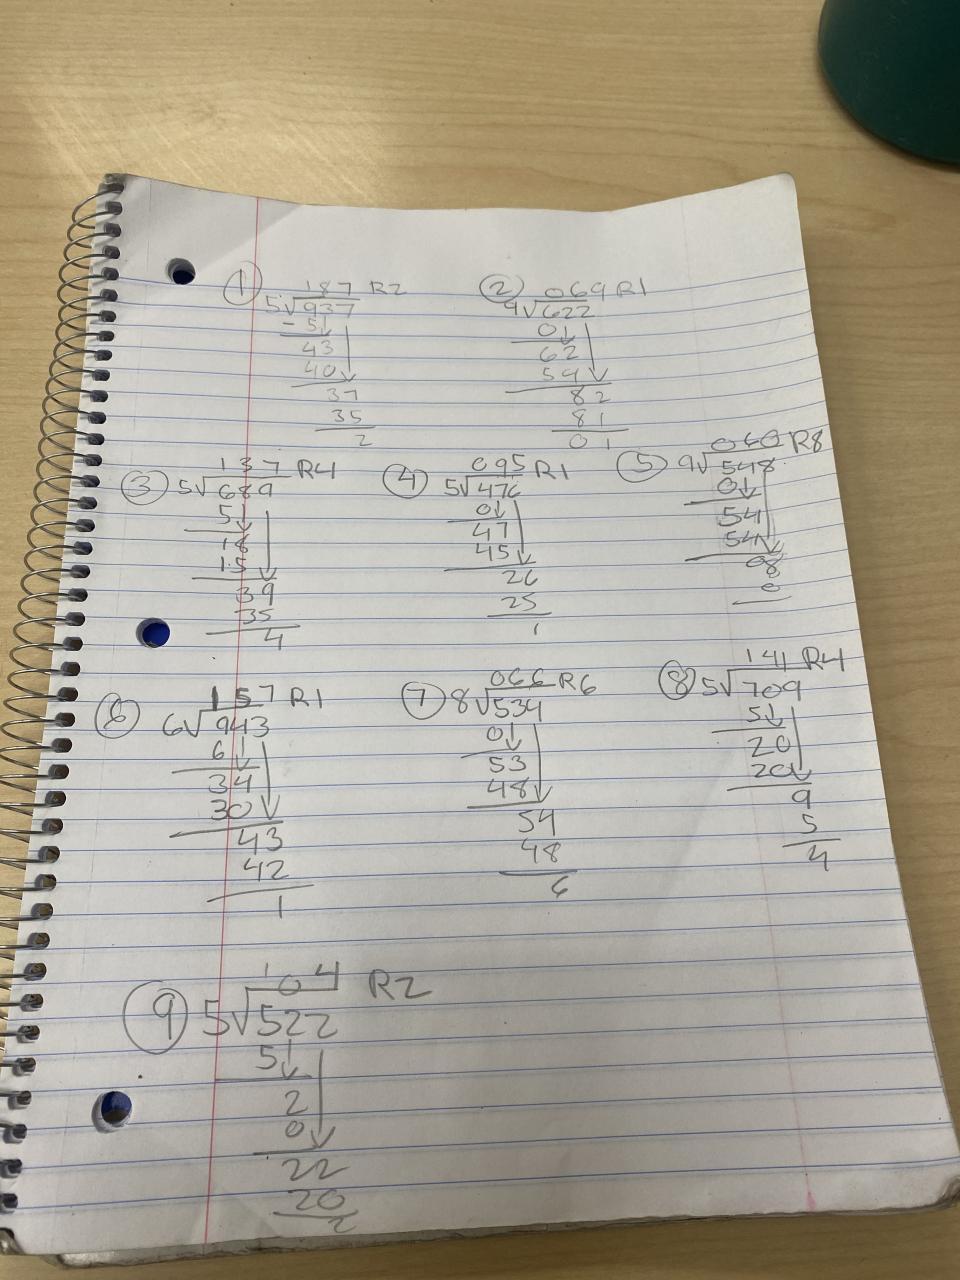 ① 187 R2
5√937
- 5
43
40
37
35
2
② 069 R1
9√622
0
62
54
82
81
01
③ 137 R4
5√689
5
18
15
39
35
4
④ 095 R1
5√476
0
47
45
26
25
1
⑤ 060 R8
9√548
0
54
54
08
0
⑥ 157 R1
6√943
6
34
30
43
42
1
⑦ 066 R6
8√534
0
53
48
54
48
6
⑧ 141 R4
5√709
5
20
20
9
5
4
⑨ 104 R2
5√522
5
2
0
22
20
2